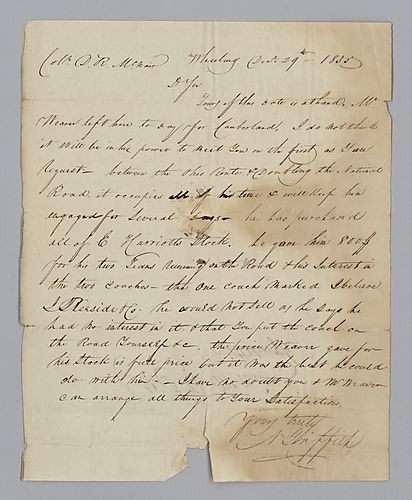 Wheeling Oct. 29th 1835
D Sir
Yours of this date is at hand. Mr
Weaver left here to day for Cumberland, I do not think
it will be in his power to meet you on the first as I have
Request – between the Ohio Route & Doubling the National
Road it occupies all of his time & will keep him
engaged for several days – he has purchased
all of E Harriotts Stock. he gave him 800$
for his two Teams running on the Road & his Interest in
the two coaches – the one couch Marked I believe
& Co. he would not sell as he says he
had no interest in it & that you put the coach on
the Road Yourself &c. the price Weaver gave for
his Stock is full price but it was the best he could
do with him – I have no doubt you & Mr Weaver
can arrange all things to Your Satisfaction
Yours truly
N Griffith